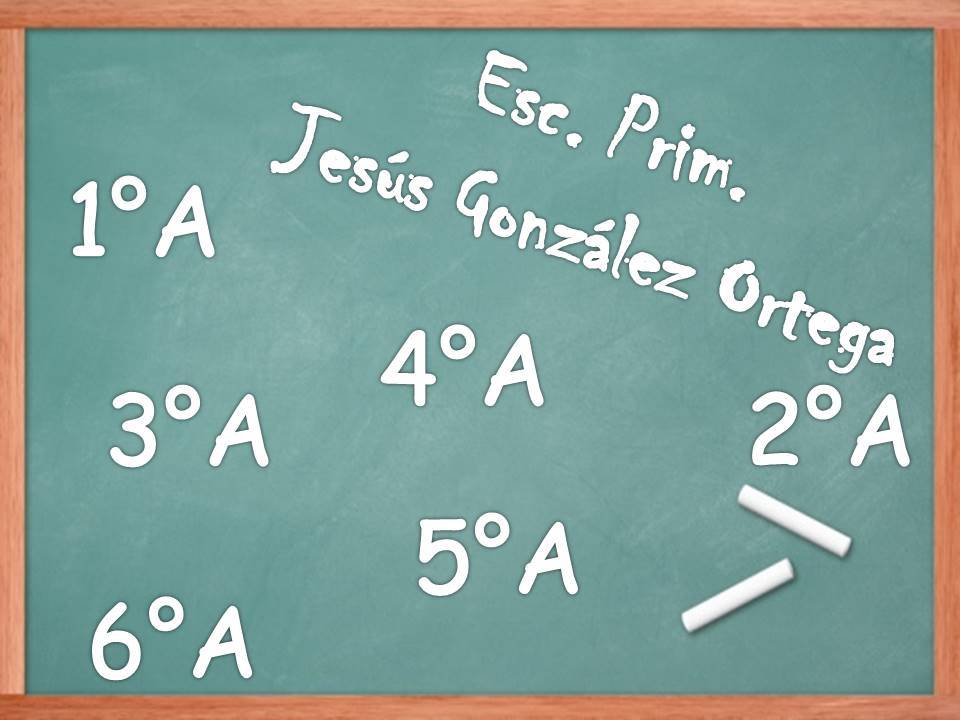 Esc. Prim.
Jesús González Ortega
1°A
4°A
3°A
2°A
5°A
6°A